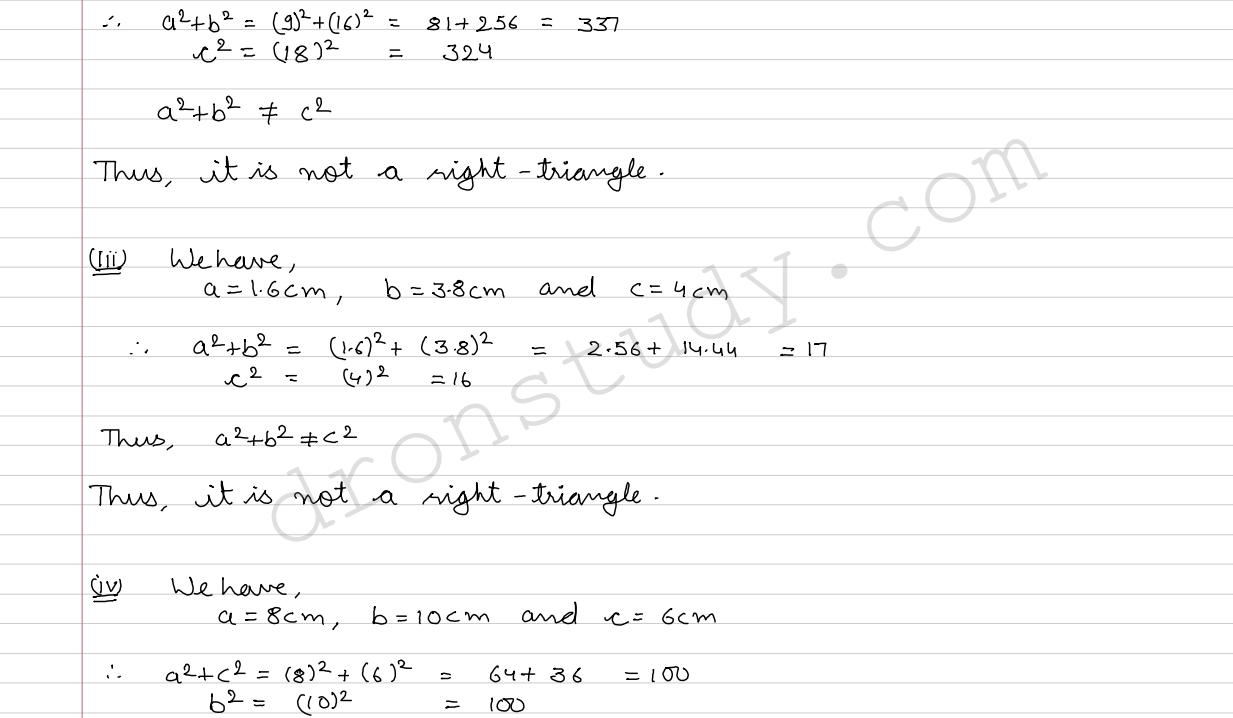 ∴ a²+b² = (9)²+(16)² = 81+256 = 337
c² = (18)² = 324
a²+b² ≠ c²
Thus, it is not a right-triangle.
(iii) We have,
a=1.6cm, b=3.8cm and c=4cm
∴ a²+b² = (1.6)²+(3.8)² = 2.56+14.44 = 17
c² = (4)² = 16
Thus, a²+b²≠c²
Thus, it is not a right-triangle.
(iv) We have,
a=8cm, b=10cm and c=6cm
∴ a²+c² = (8)²+(6)² = 64+36 = 100
b² = (10)² = 100
dronstudy.com